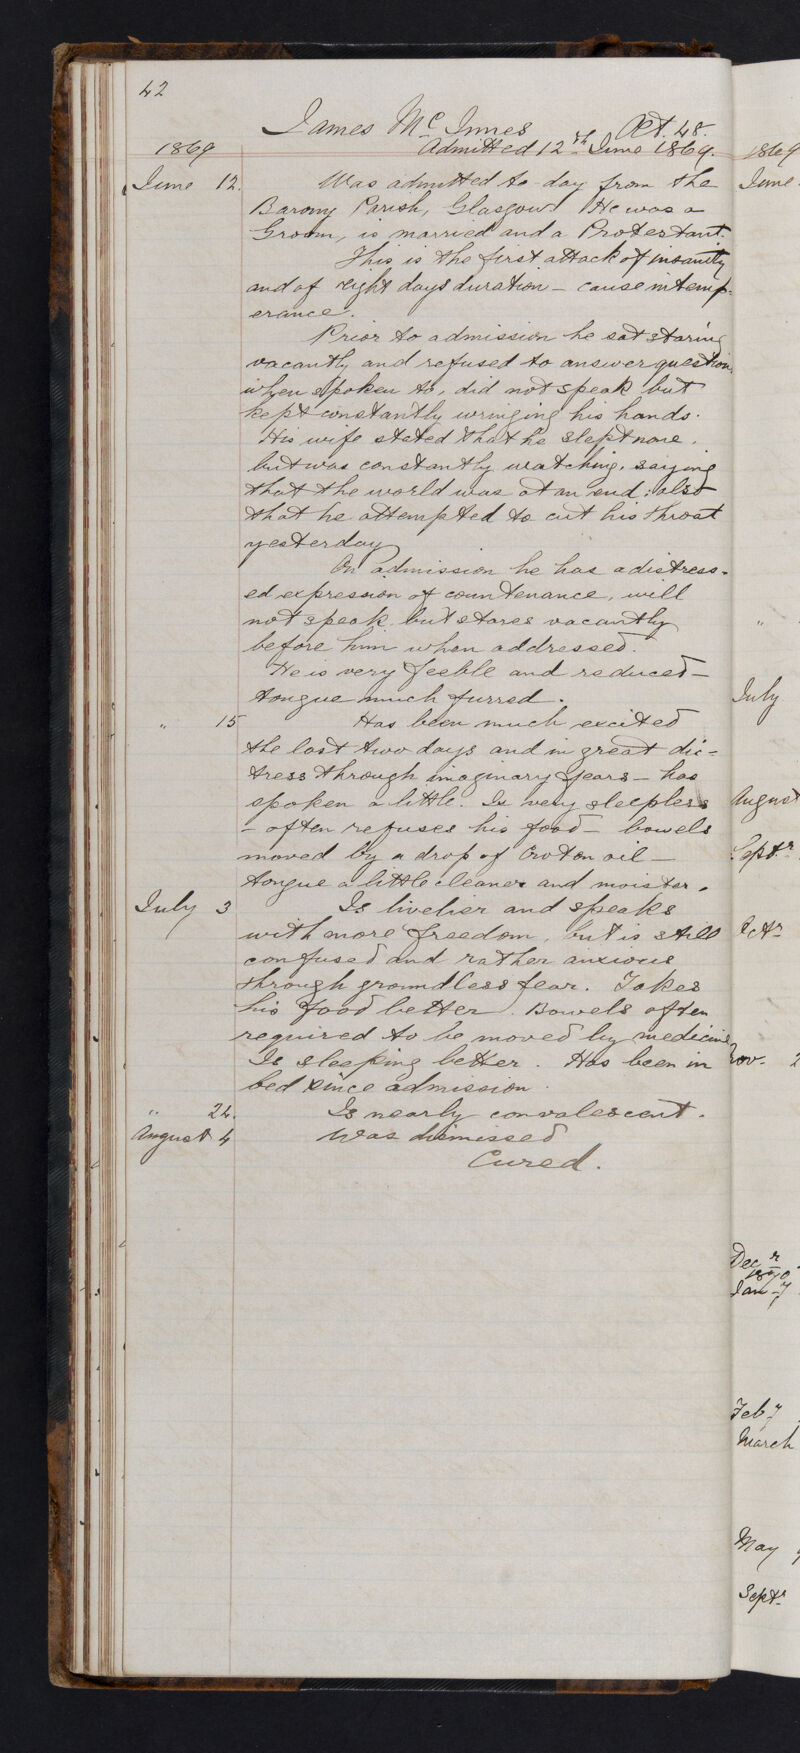 42
James McInnes Aet. 48.
1869 Admitted 12th June 1869.
June 12. Was admitted to-day from the
Barony Parish, Glasgow. He was a
Groom, is married and a Protestant.
This is the first attack of insanity
and of eight days duration – cause intemp-
erance.
Prior to admission he sat staring
vacantly and refused to answer questions
when spoken to, did not speak but
kept constantly wringing his hands.
His wife stated that he slept none,
but was constantly watching, saying
that the world was at an end; also
that he attempted to cut his throat
yesterday
On admission he has a distress-
ed expression of countenance, will
not speak but stares vacantly
before him when addressed.
He is very feeble and reduced –
tongue much furred.
" 15 Has been much excited
the last two days and in great dis-
tress through imaginary fears – has
spoken a little. Is very sleepless
– often refuses his food – bowels
moved by a drop of Croton oil –
tongue a little cleaner and moister.
July 3 Is livelier and speaks
with more freedom, but is still
confused and rather anxious
through groundless fear. Takes
his food better. Bowels often
required to be moved by medicine
Is sleeping better. Has been in
bed since admission.
" 24. Is nearly convalescent.
August 4 Was dismissed
Cured.
1869
June
"
July
August
Septr
Octr
Nov. 2
Decr
1870
Jan 7
Feb 7
March
May
Septr